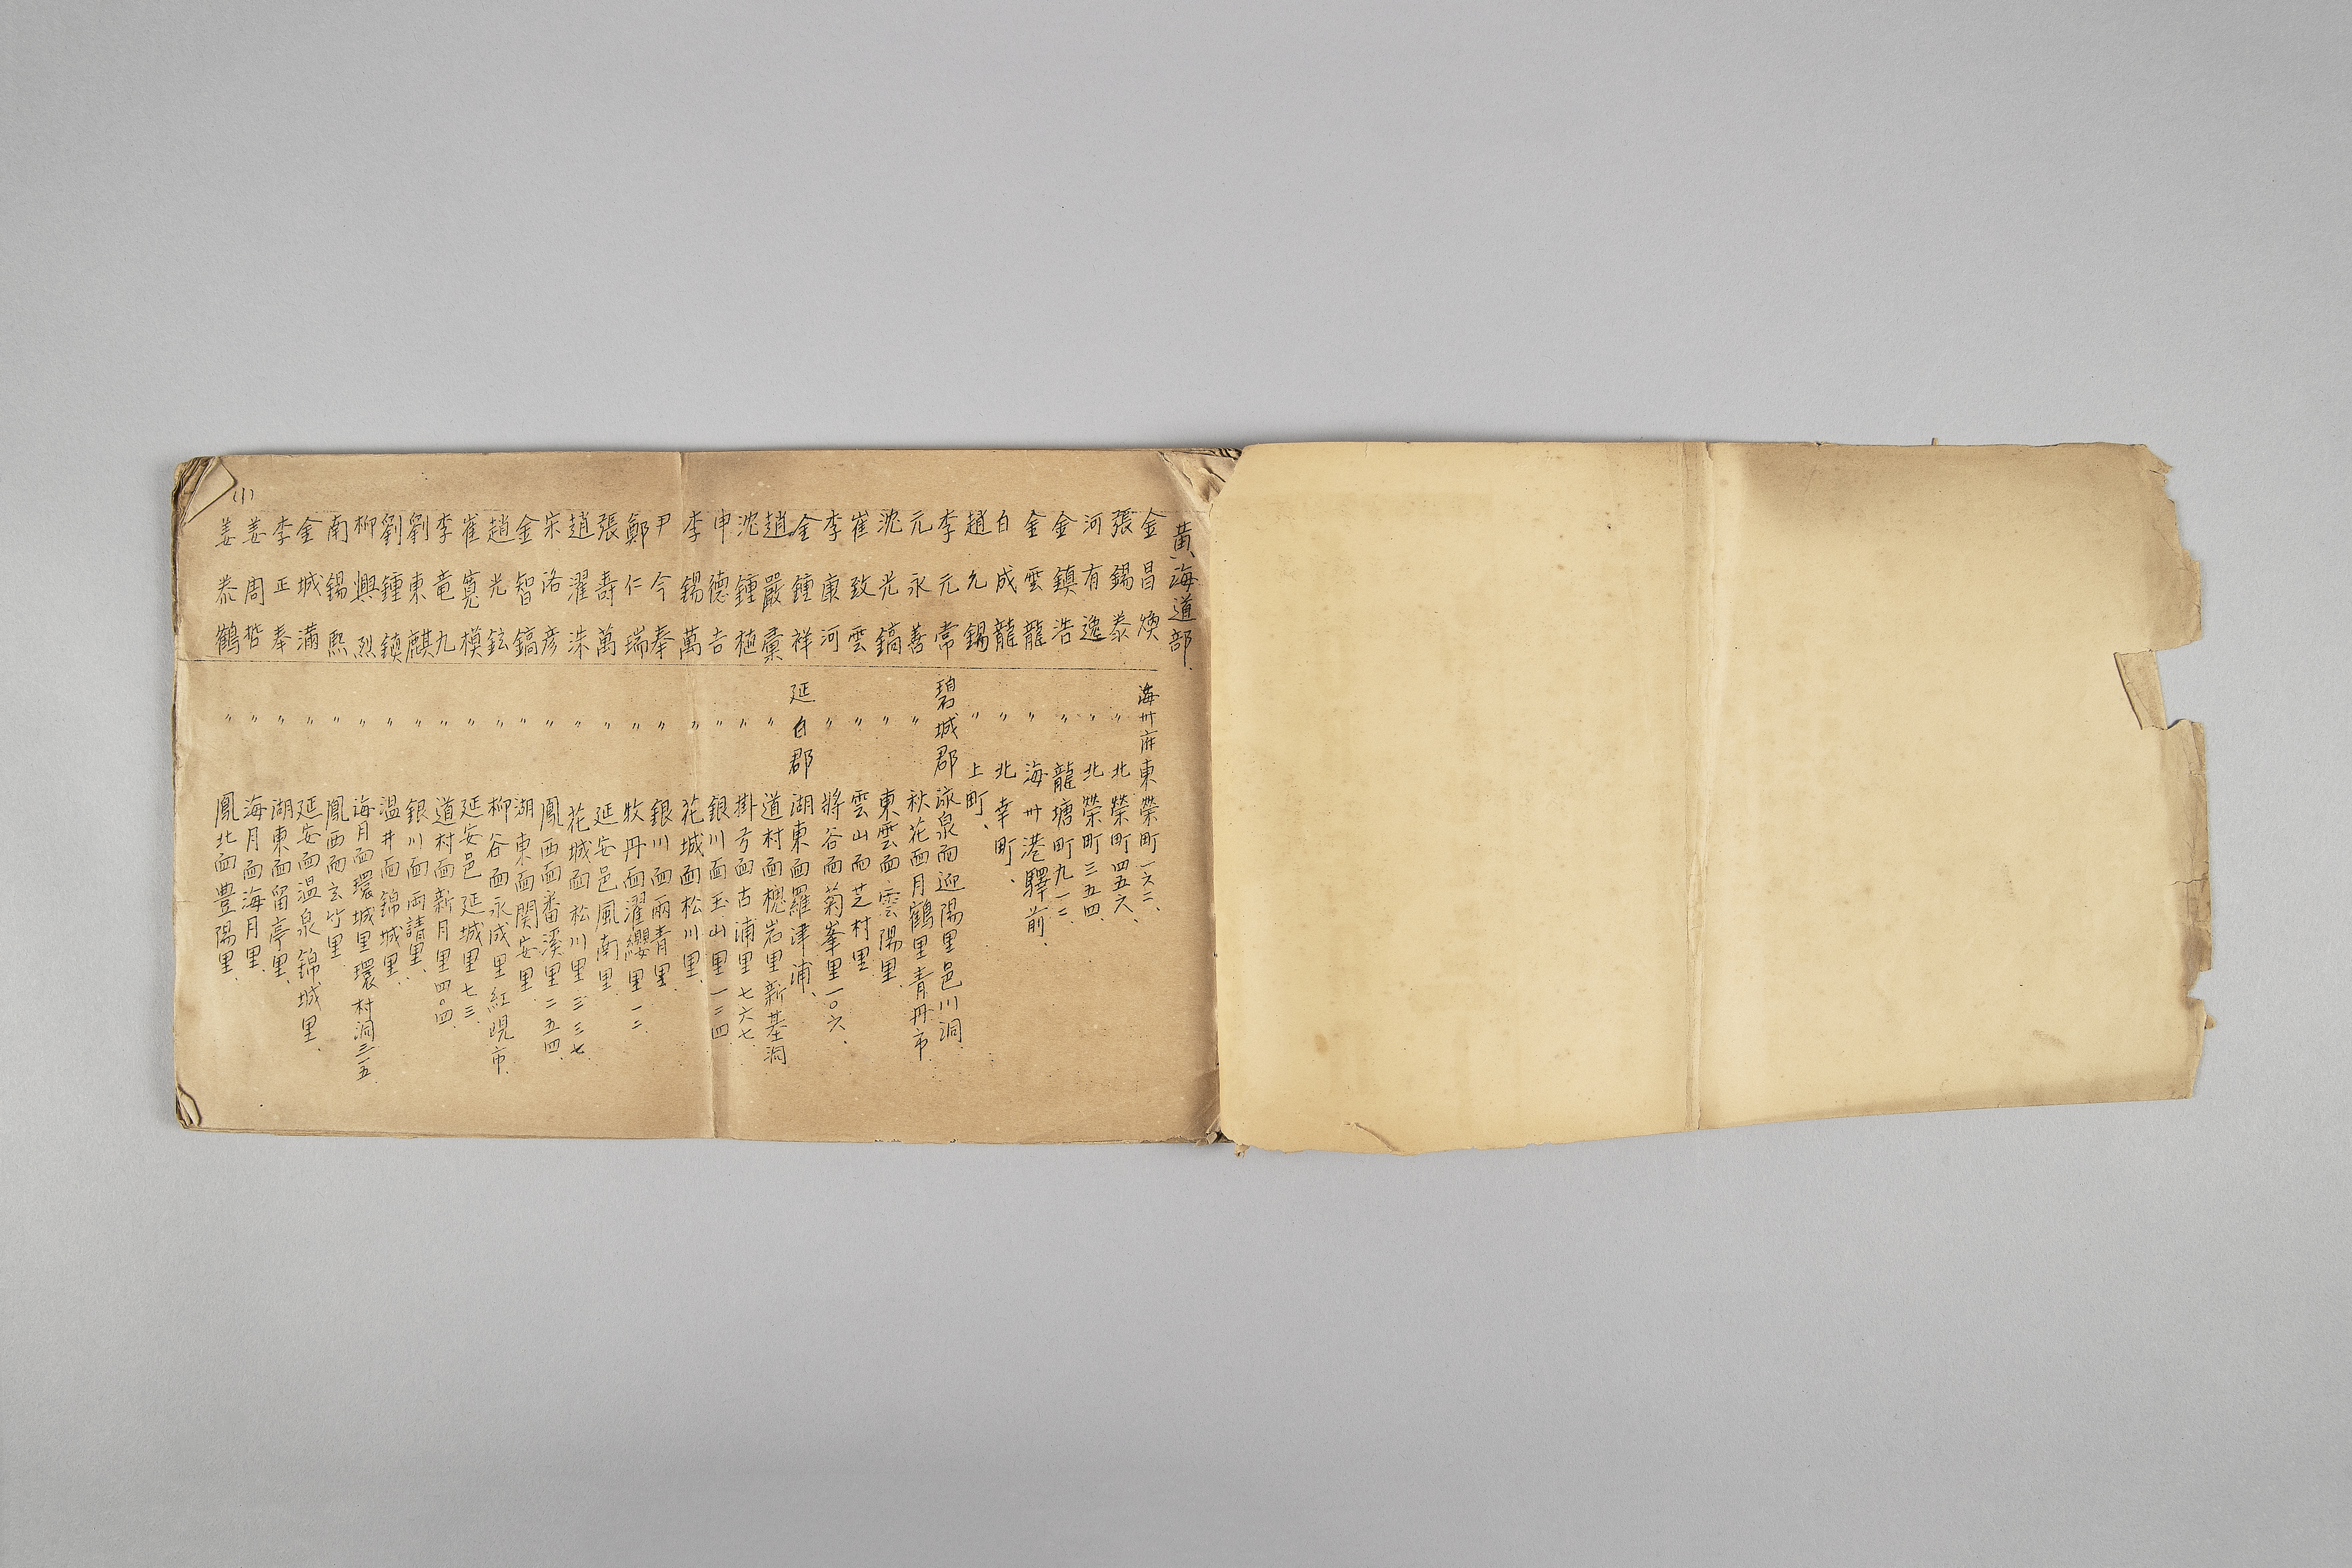 黃海道部
金昌煥 海州府東榮町一六二、
張錫泰 〃 北榮町四五六、
河有逸 〃 北榮町三五四、
金鎮浩 〃 龍塘町九一二、
金雲龍 〃 海州港驛前、
白成龍 〃 北幸町、
趙允錫 〃 上町、
李元常 碧城郡 泳泉面迎陽里邑川洞、
元永善 〃 秋花面月鶴里青丹市、
沈光鎬 〃 東雲面雲陽里、
崔致雲 〃 雲山面芝村里、
李康河 〃 將谷面菊峯里一〇六、
金鍾祥 延白郡 湖東面羅津浦、
趙嚴稟 〃 道村面槐岩里新基洞
沈鍾植 〃 掛弓面古浦里七六七、
申德吉 〃 銀川面玉山里一二四、
李錫萬 〃 花城面松川里、
尹今奉 〃 銀川面兩青里、
鄭仁瑞 〃 牧丹面濯纓里一二、
張壽萬 〃 延安邑風南里、
趙濯洙 〃 花城面松川里三三七、
宋洛彦 〃 鳳西面番溪里二五四、
金智鎬 〃 湖東面関安里、
趙光鉉 〃 柳谷面永成里紅現市、
崔寬模 〃 延安邑延城里七三、
李竜九 〃 道村面新月里四〇四、
劉東麒 〃 銀川面両請里、
劉鍾鎮 〃 温井面錦城里、
柳興烈 〃 海月面環城里環村洞三五、
南錫熙 〃 鳳西面玄竹里、
金城満 〃 延安面温泉錦城里、
李正奉 〃 湖東面留亭里、
姜周楷 〃 海月面海月里、
姜泰鶴 〃 鳳北面豊陽里、
(1)